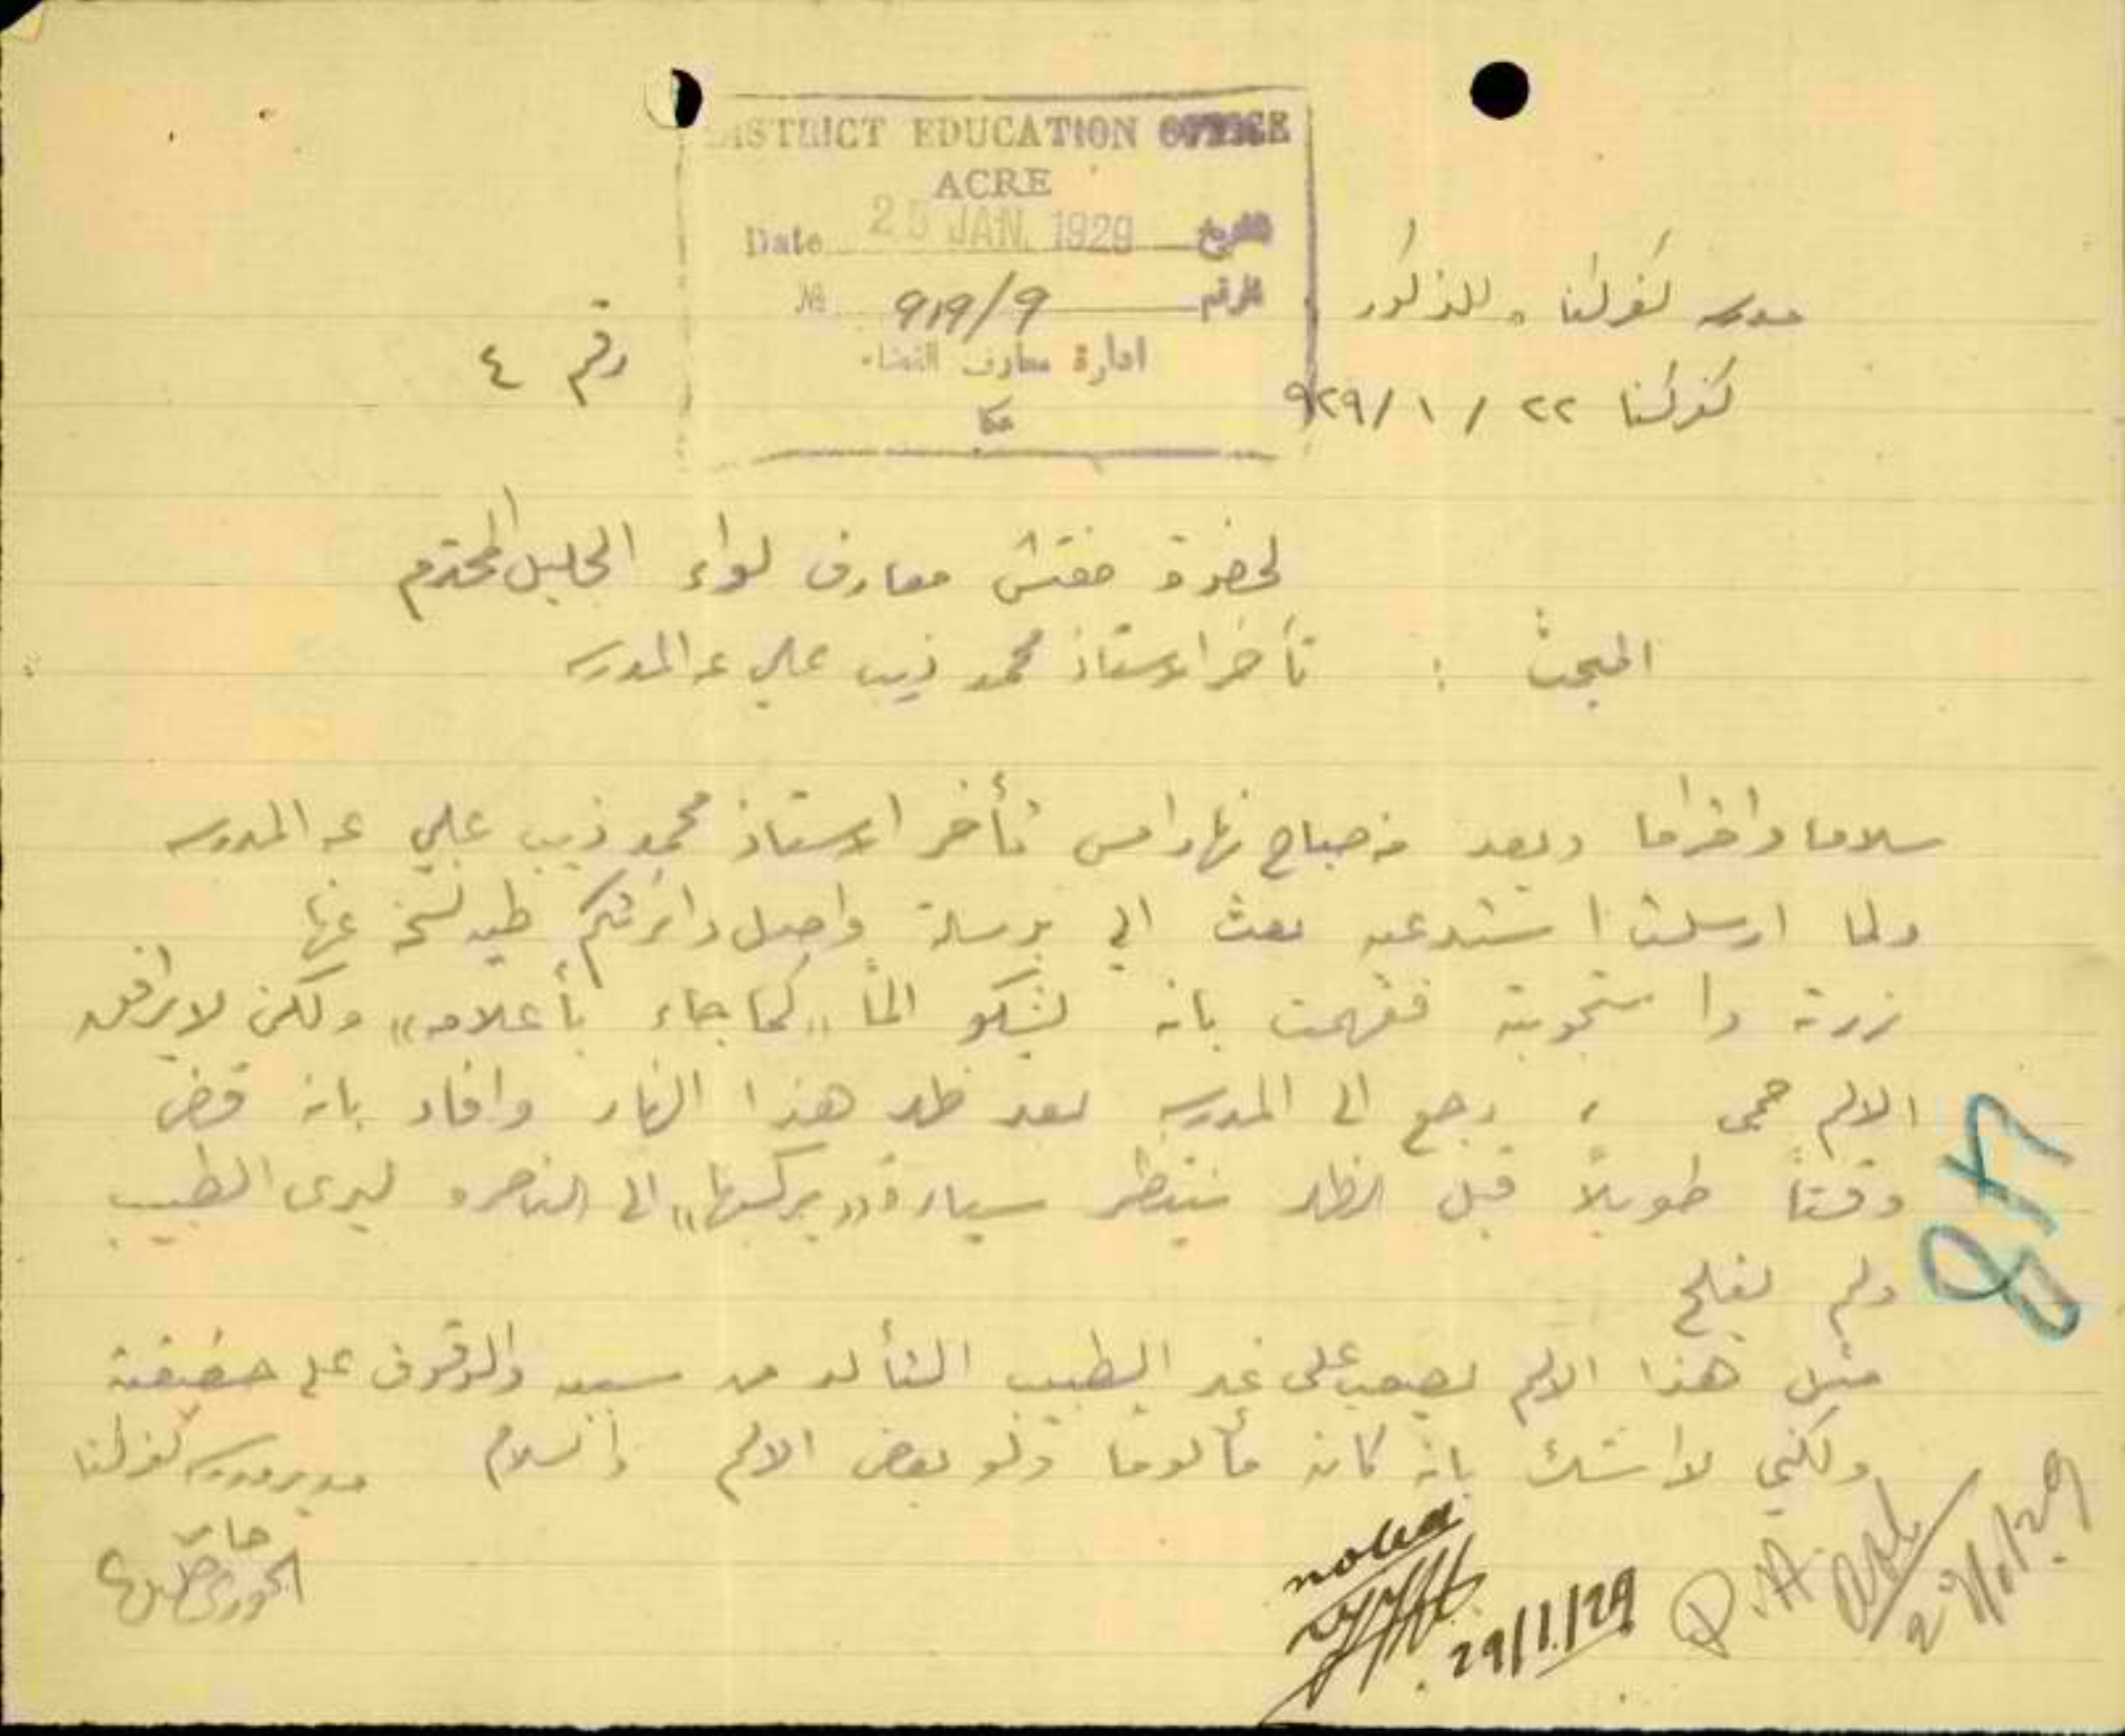 DISTRICT EDUCATION OFFICE
ACRE
Date 25 JAN. 1929 التاريخ
№ 919/9 الرقم
ادارة معارف القضاء
عكا
مدرسة كفركنا للذكور
كفركنا ٢٢ / ١ / ٩٢٩
رقم ٤
لحضرة مفتش معارف لواء الجليل المحترم
المبحث : تأخر الاستاذ محمد ذيب علي عن المدرسه
سلاما واحتراما وبعد من صباح نهار امس تأخر الاستاذ محمد ذيب علي عن المدرسه
ولما ارسلت استدعيه بعث الي برسالة واصل دائرتكم طيه نسخة عنها
زرته واستجوبته ففهمت بانه يشكو الماً "كما جاء بأعلامه" ولكن لا يرافق
الالم حمى ، رجع الى المدرسه بعد ظهر هذا النهار وافاد بانه قضى
وقتاً طويلاً قبل الظهر ينتظر سيارة "يركبها" الى الناصره ليرى الطبيب
ولم يفلح
مثل هذا الالم يصعب على غير الطبيب التأكد من سببه والوقوف على حقيقته
ولكني لا اشك بانه كان مألوما ولو بعض الالم والسلام
مدير مدرسه كفركنا
الخوري
848
noted
29/1/29
P.A.
29/1/29